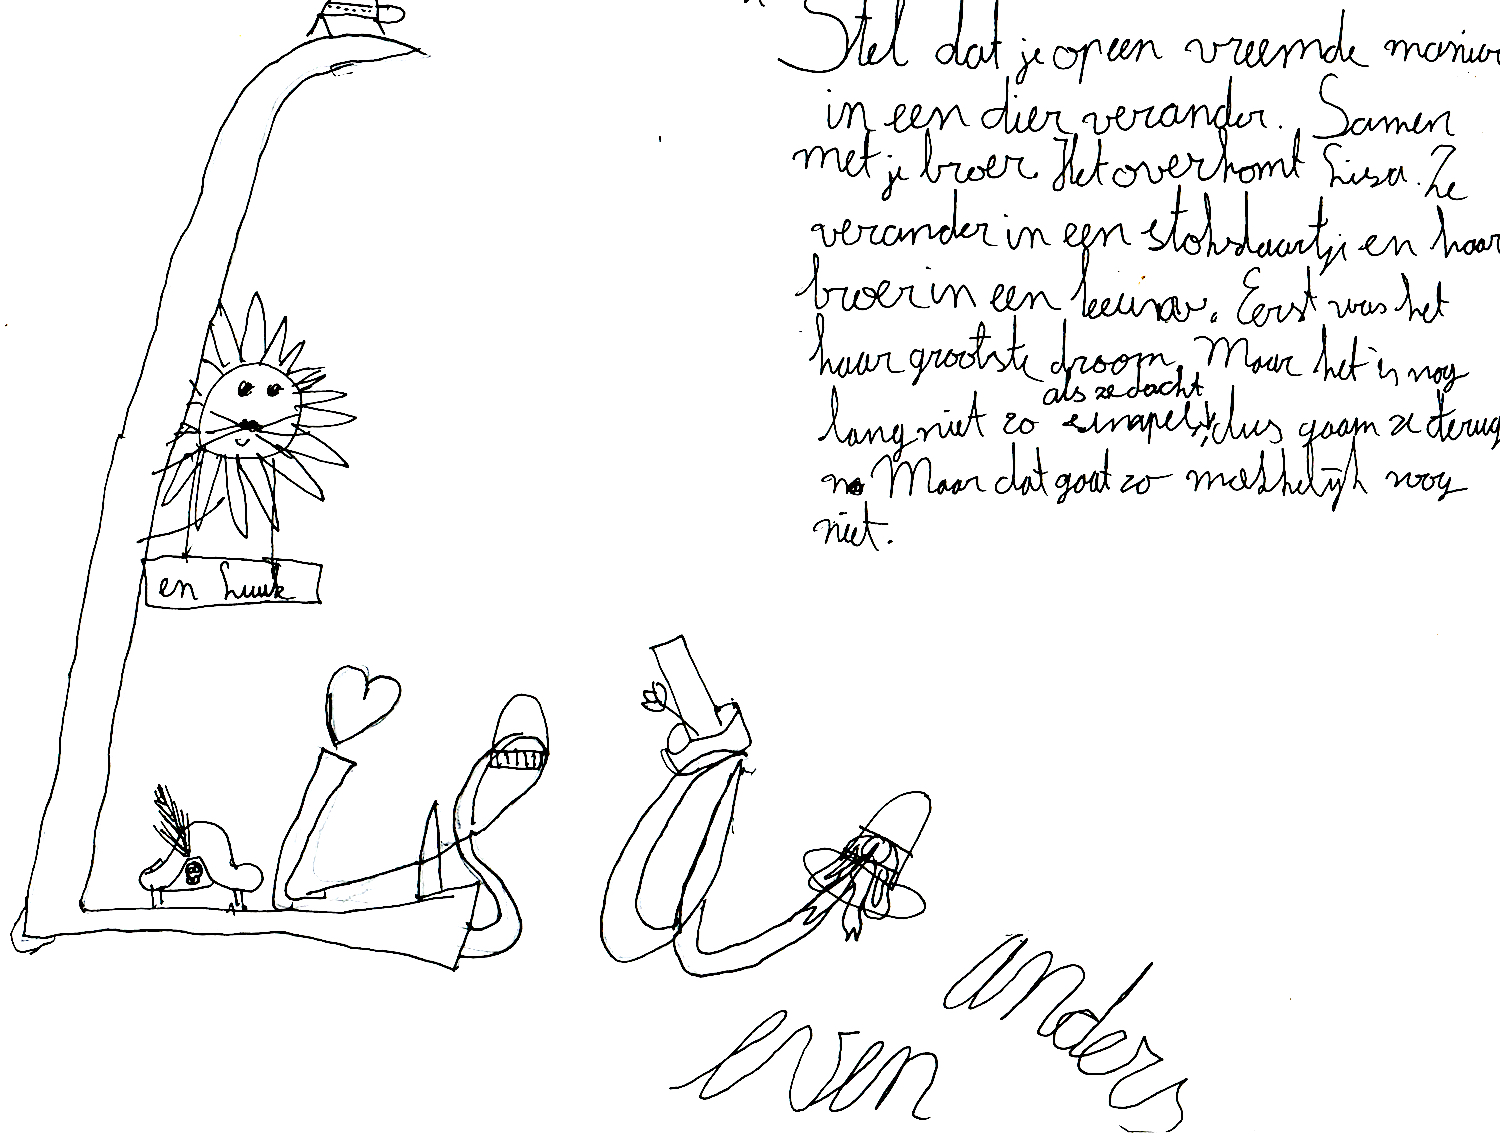 Stel dat je op een vreemde manier
in een dier verander. Samen
met je broer. Het overkomt Lisa. Ze
verander in een stokstaartje en haar
broer in een leeuw. Eerst was het
haar grootste droom. Maar het is nog
als ze dacht
lang niet zo simpel, dus gaan ze terug
Maar dat gaat zo makkelijk nog
niet.
en Luuk
Lisa
even
anders